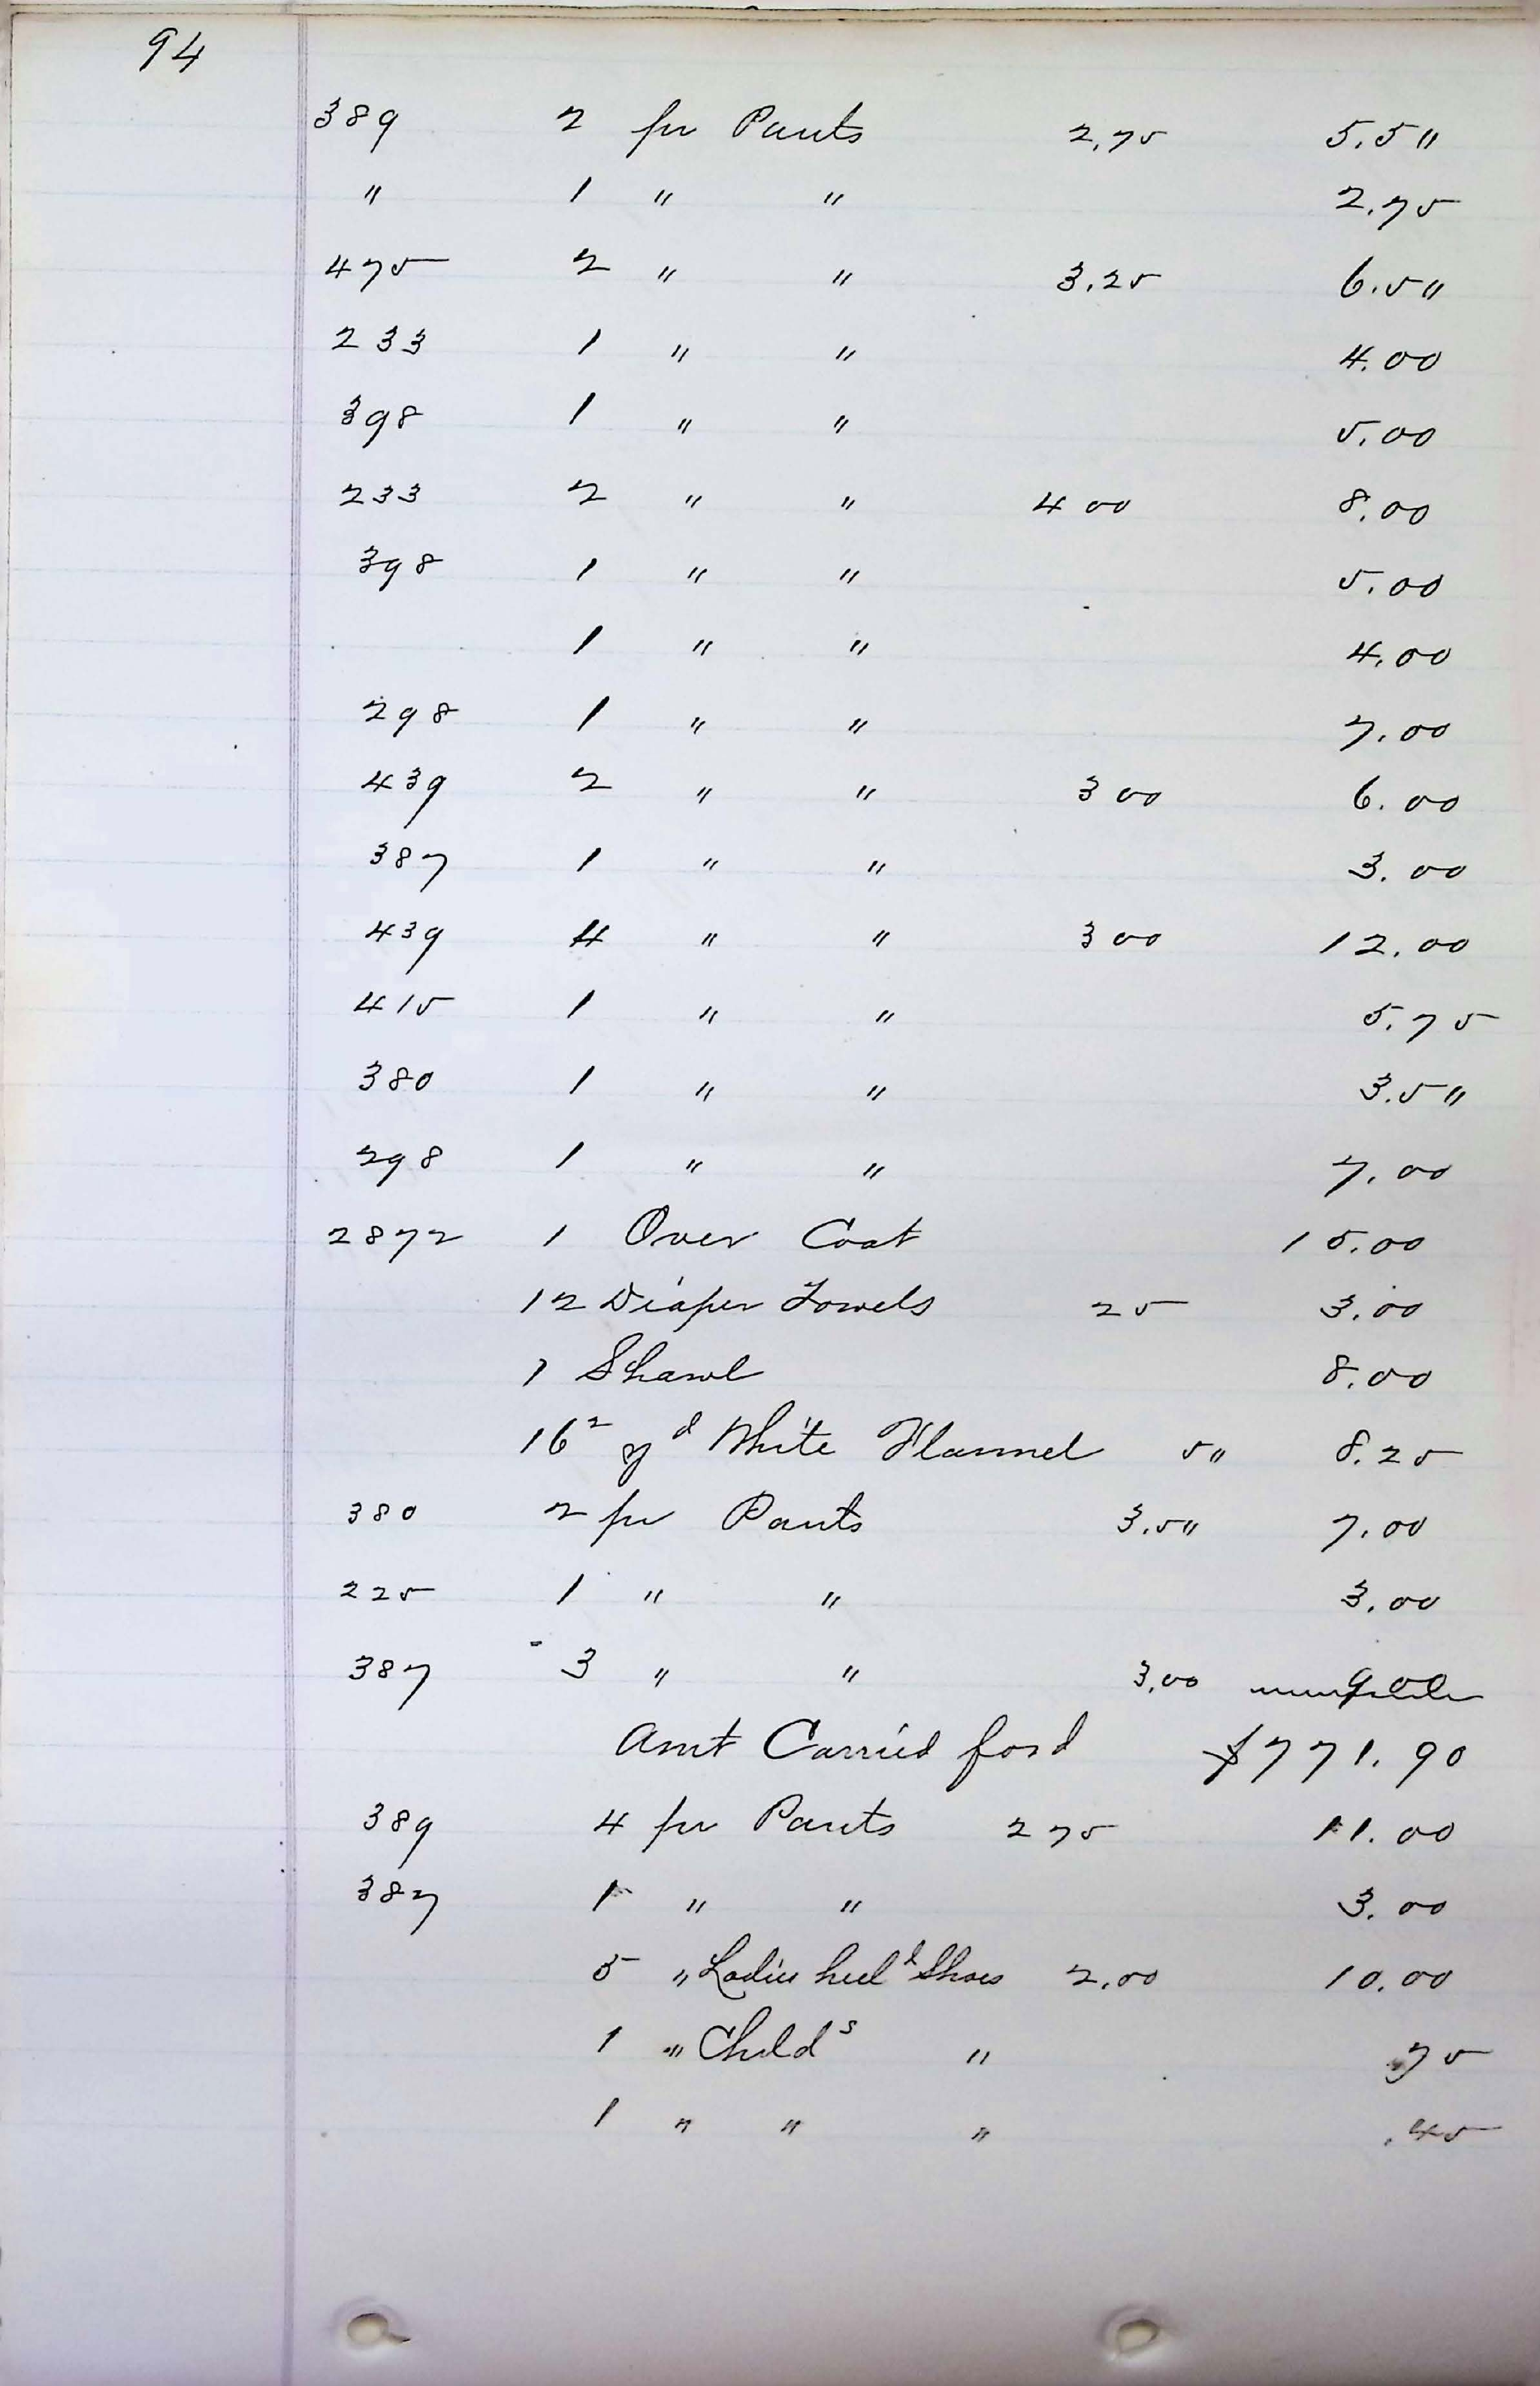 94
389 2 pr Pants 2,75 5.5"
" 1 " " 2.75
475 2 " " 3.25 6.5"
233 1 " " 4.00
398 1 " " 5.00
233 2 " " 4 00 8.00
398 1 " " 5.00
1 " " 4.00
298 1 " " 7.00
439 2 " " 3 00 6.00
387 1 " " 3.00
439 4 " " 3 00 12.00
415 1 " " 5.75
380 1 " " 3.5"
298 1 " " 7.00
2872 1 Over Coat 15.00
12 Diaper Towels 25 3.00
1 Shawl 8.00
16² yd White Flannel 5" 8.25
380 2 pr Pants 3.5" 7.00
225 1 " " 3.00
387 3 " " 3.00 9.00
Amt Carried ford $771.90
389 4 pr Pants 275 11.00
387 1 " " 3.00
5 " Ladies heeld Shoes 2.00 10.00
1 " Childs " .75
1 " " " .45